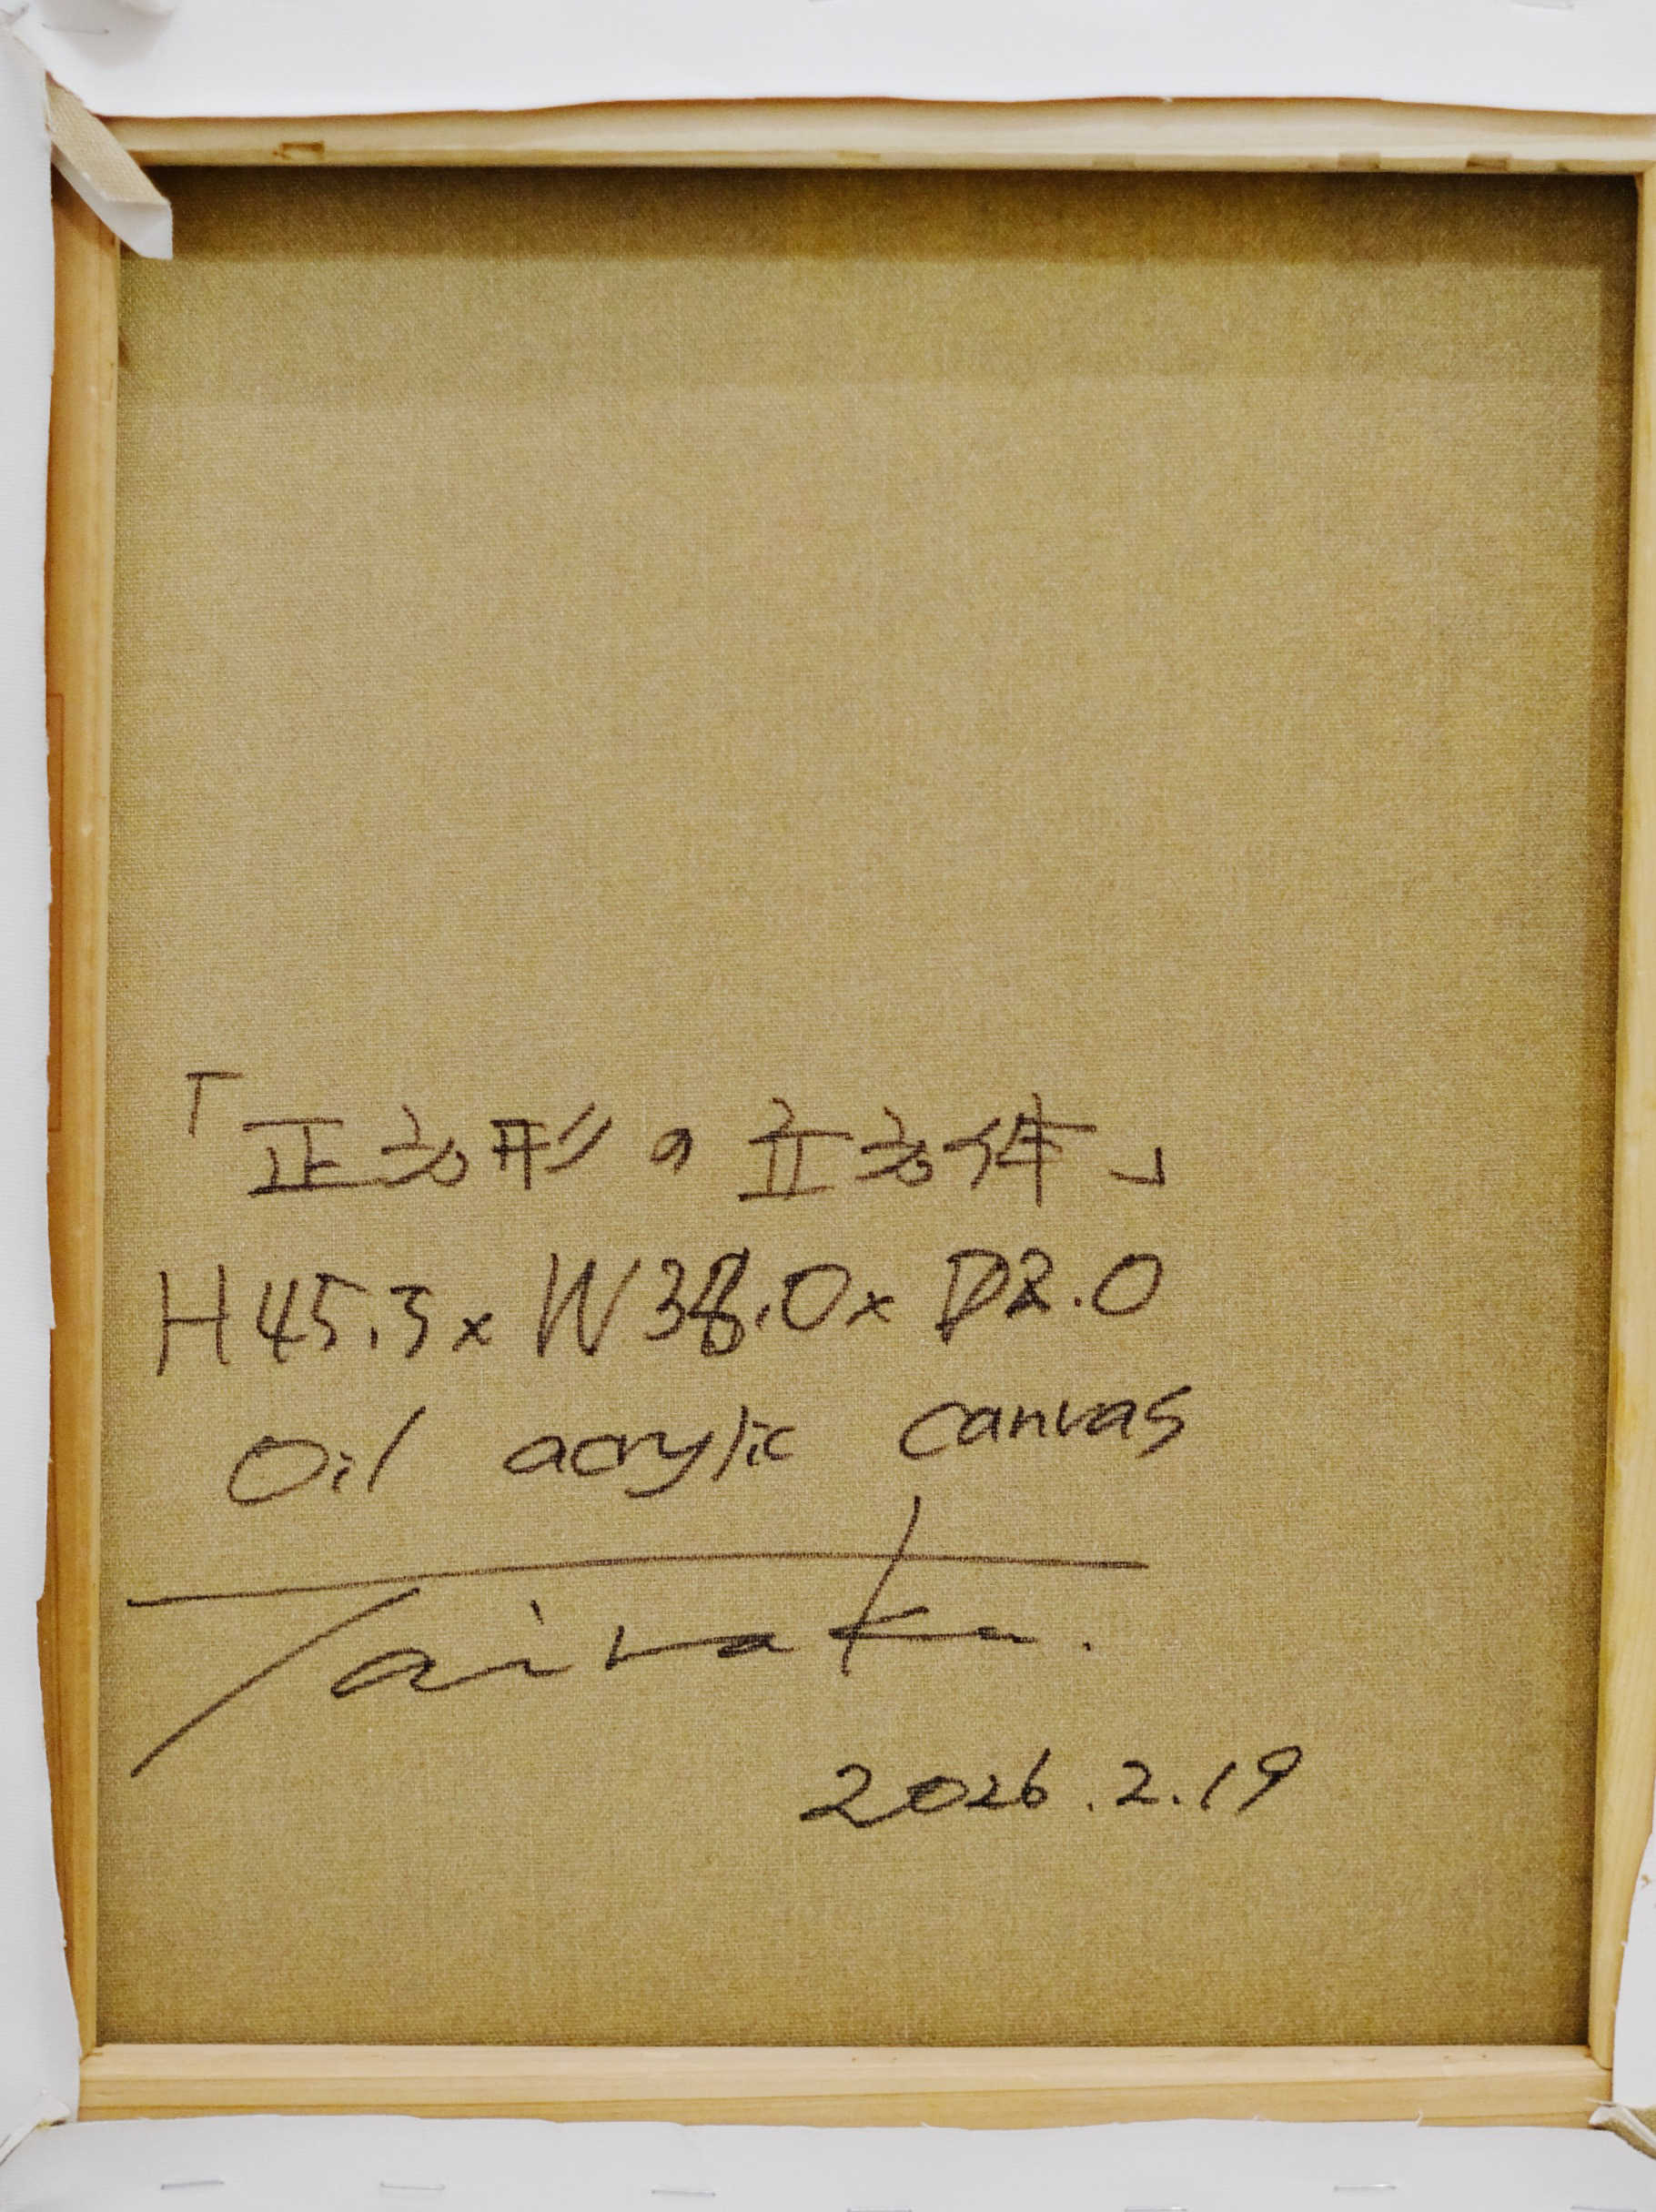 「正方形の立方体」
H45.5 x W38.0 x D2.0
Oil acrylic canvas
Tainaka.
2026.2.19